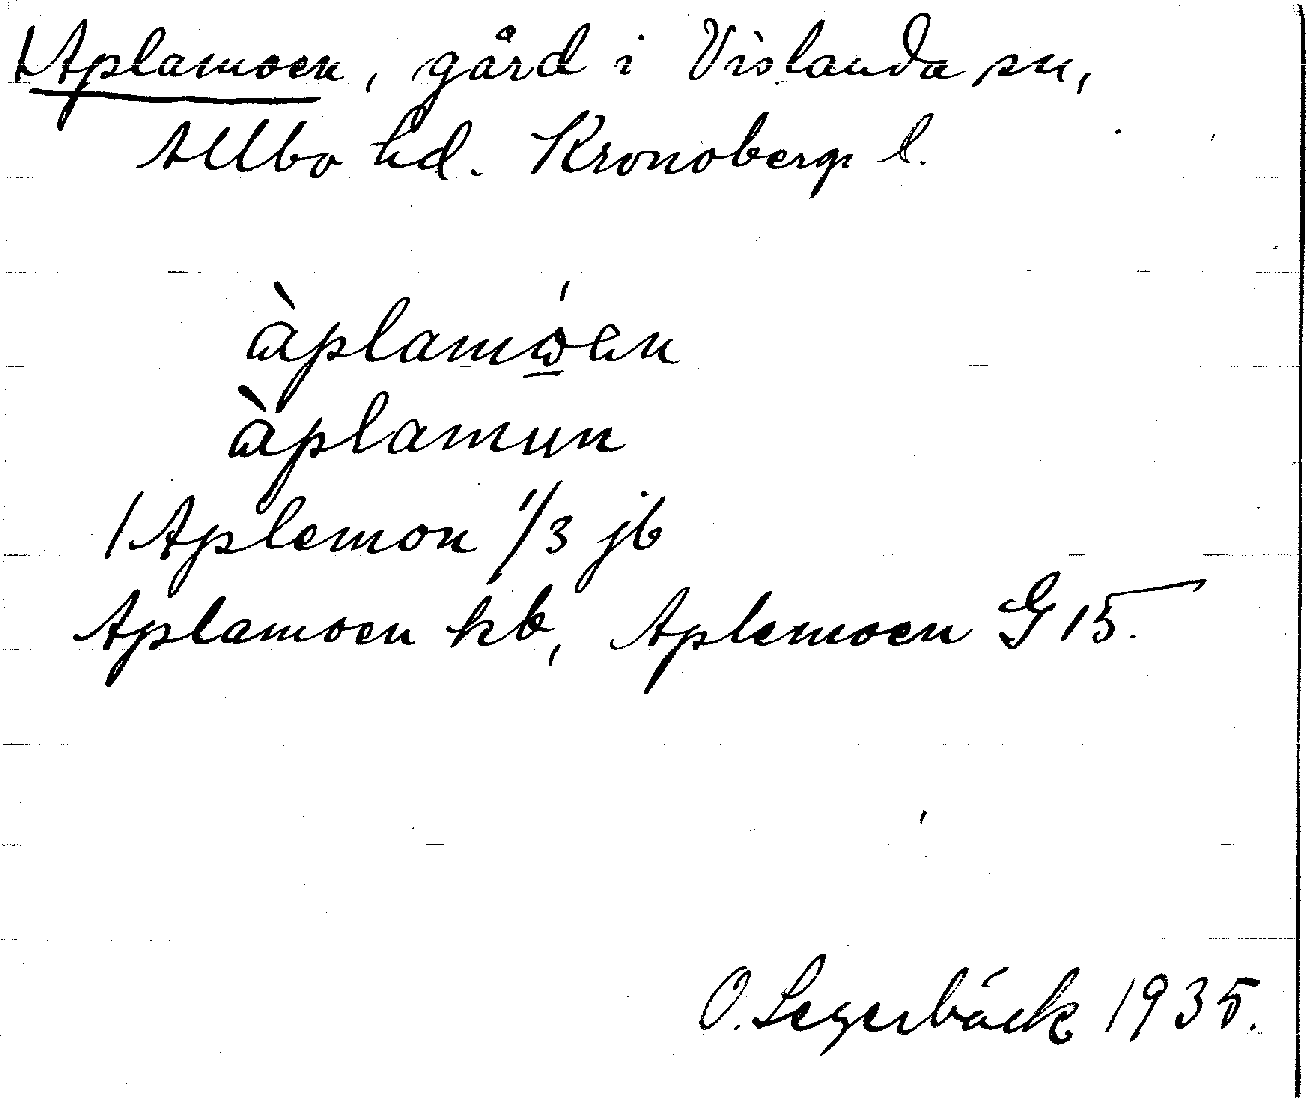 1 Aplamoen, gård i Vislanda sn,
Allbo hd. Kronoberg l.
àplamóen
àplamun
1 Aplemon 1/3 jb
Aplamoen kb, Aplemoen G 15.
O. Segerbäck 1935.